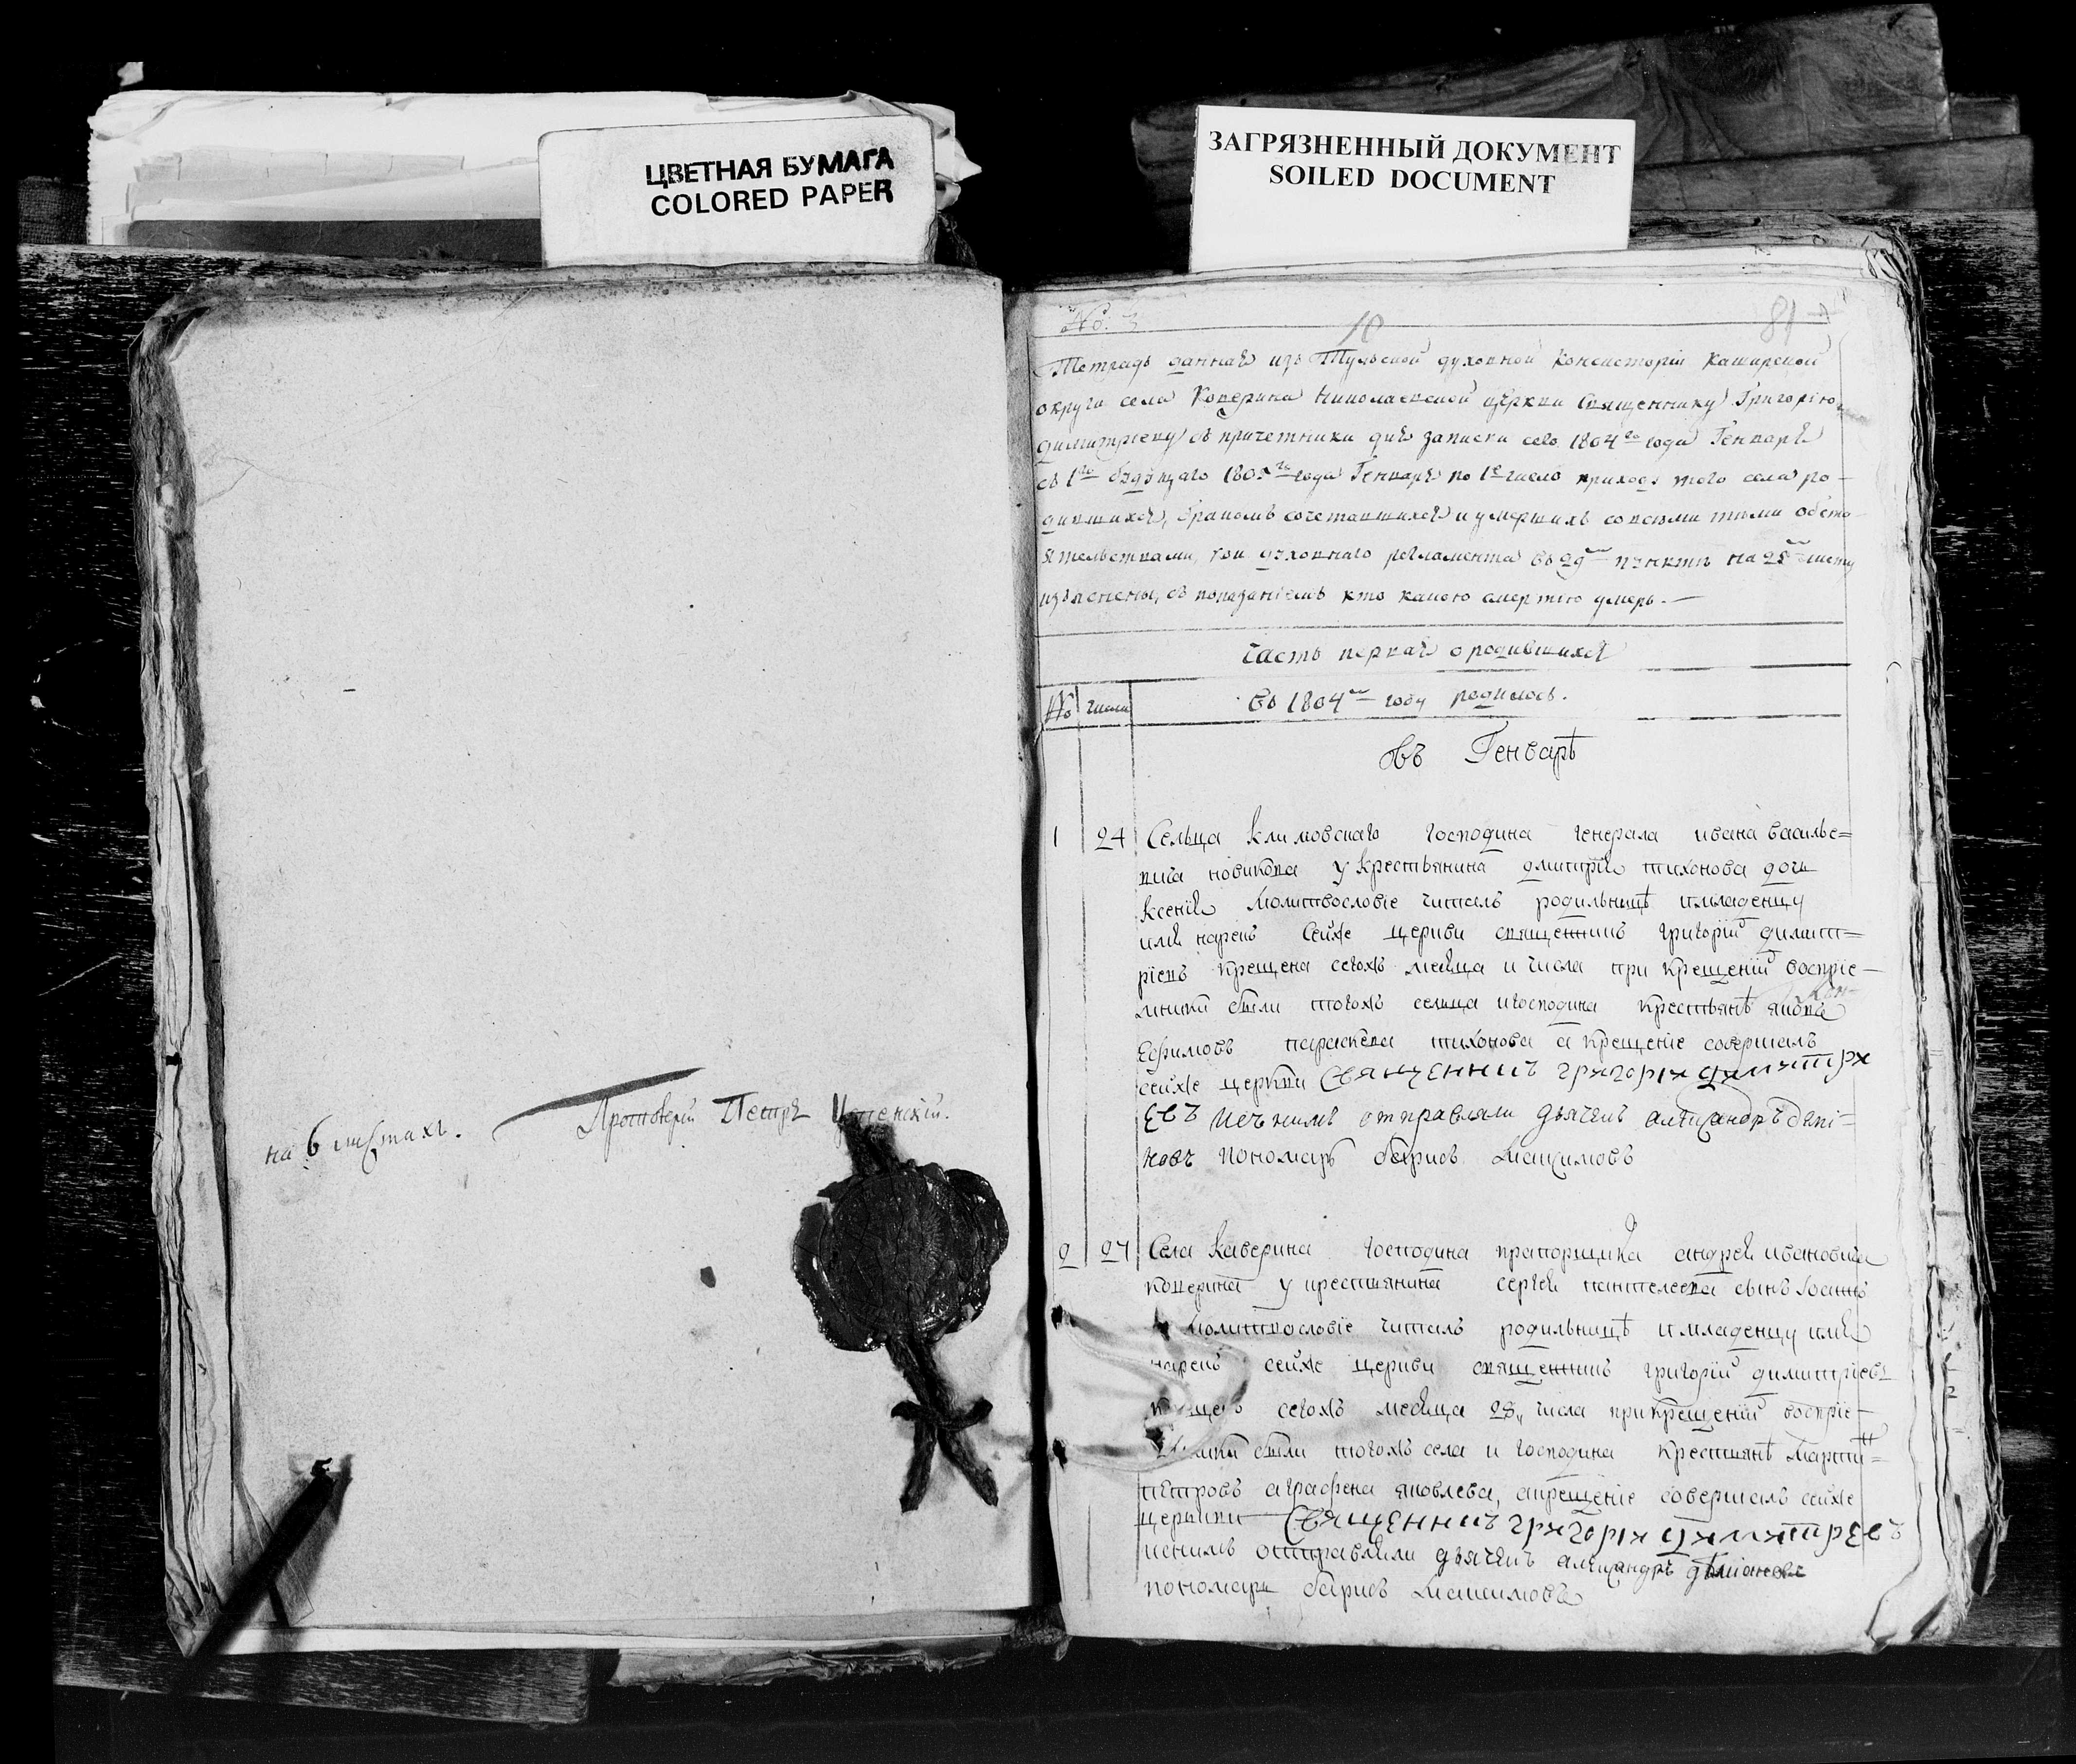 ЦВЕТНАЯ БУМАГА
COLORED PAPER
ЗАГРЯЗНЕННЫЙ ДОКУМЕНТ
SOILED DOCUMENT
на 6 листахъ. Протоіерей Петръ Успенскій.
№: 3 10 81
Тетрадь данная изъ Тульской духовной Консисторіи Каширской
округи села Коверина Николаевской церкви Священнику Григорію
Димитріеву съ причетники для записки сего 1804го года Генваря
съ 1го будущаго 1805го года Генваря по 1е число приходе того села ро-
дившихся, бракомъ сочетавшихся и умершихъ со всеми теми обсто
ятельствами, кои духовнаго регламента въ 29м пунктѣ на листу
изъяснены, съ показаніемъ кто какою смертію умеръ.—
Часть первая о родившихся
№ числа Въ 1804м году родилось.
въ Генварѣ
1 24 Сельца Климовскаго господина генерала ивана василье=
вича новикова у крестьянина дмитрія тихонова дочь
ксенія молитвословіе читалъ родильницѣ и младенцу
имя нарекъ сейже церкви священникъ григорій димит=
ріевъ крещена сегожъ месяца и числа при крещеніи воспріе-
мники были тогожъ сельца и господина крестьянѣ
Ефимовъ параскева тихонова а крещеніе совершалъ
сейже церкви Священникъ григорій димитрі
евъ и съ нимъ отправляли дьячекъ александръ
новъ пономарь борисъ максимовъ
2 27 Села каверина господина прапорщика андрея ивановича
коверина у крестьянина сергея пантелеева сынъ Іоаннъ
молитвословіе читалъ родильницѣ и младенцу имя
нарекъ сейже церкви священникъ григорій димитріевъ
крещенъ сегожъ месяца 28,, числа при крещеніи воспріе-
мники были тогожъ села и господина крестьянѣ мартин=
петровъ аграфена яковлева, а крещеніе совершалъ сейже
церкви Священникъ григорій Димитревъ
и снимъ отправляли дьячекъ александръ деміановъ
пономарь борисъ максимовъ